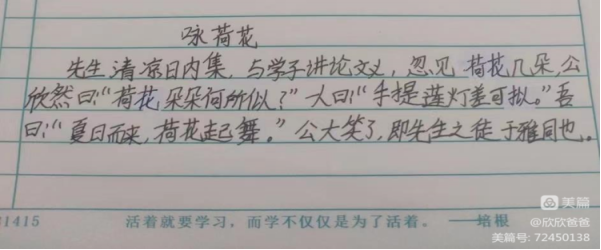 咏荷花
先生清凉日内集,与学子讲论文义,忽见荷花几朵,公
欣然曰:“荷花朵朵何所似?”大曰:“手提莲灯差可拟。”吾
曰:“夏日而来,荷花起舞。”公大笑了,即先生之徒于雅同也。
31415 活着就要学习,而学不仅仅是为了活着。——培根
美篇
@欣欣爸爸
美篇号: 72450138